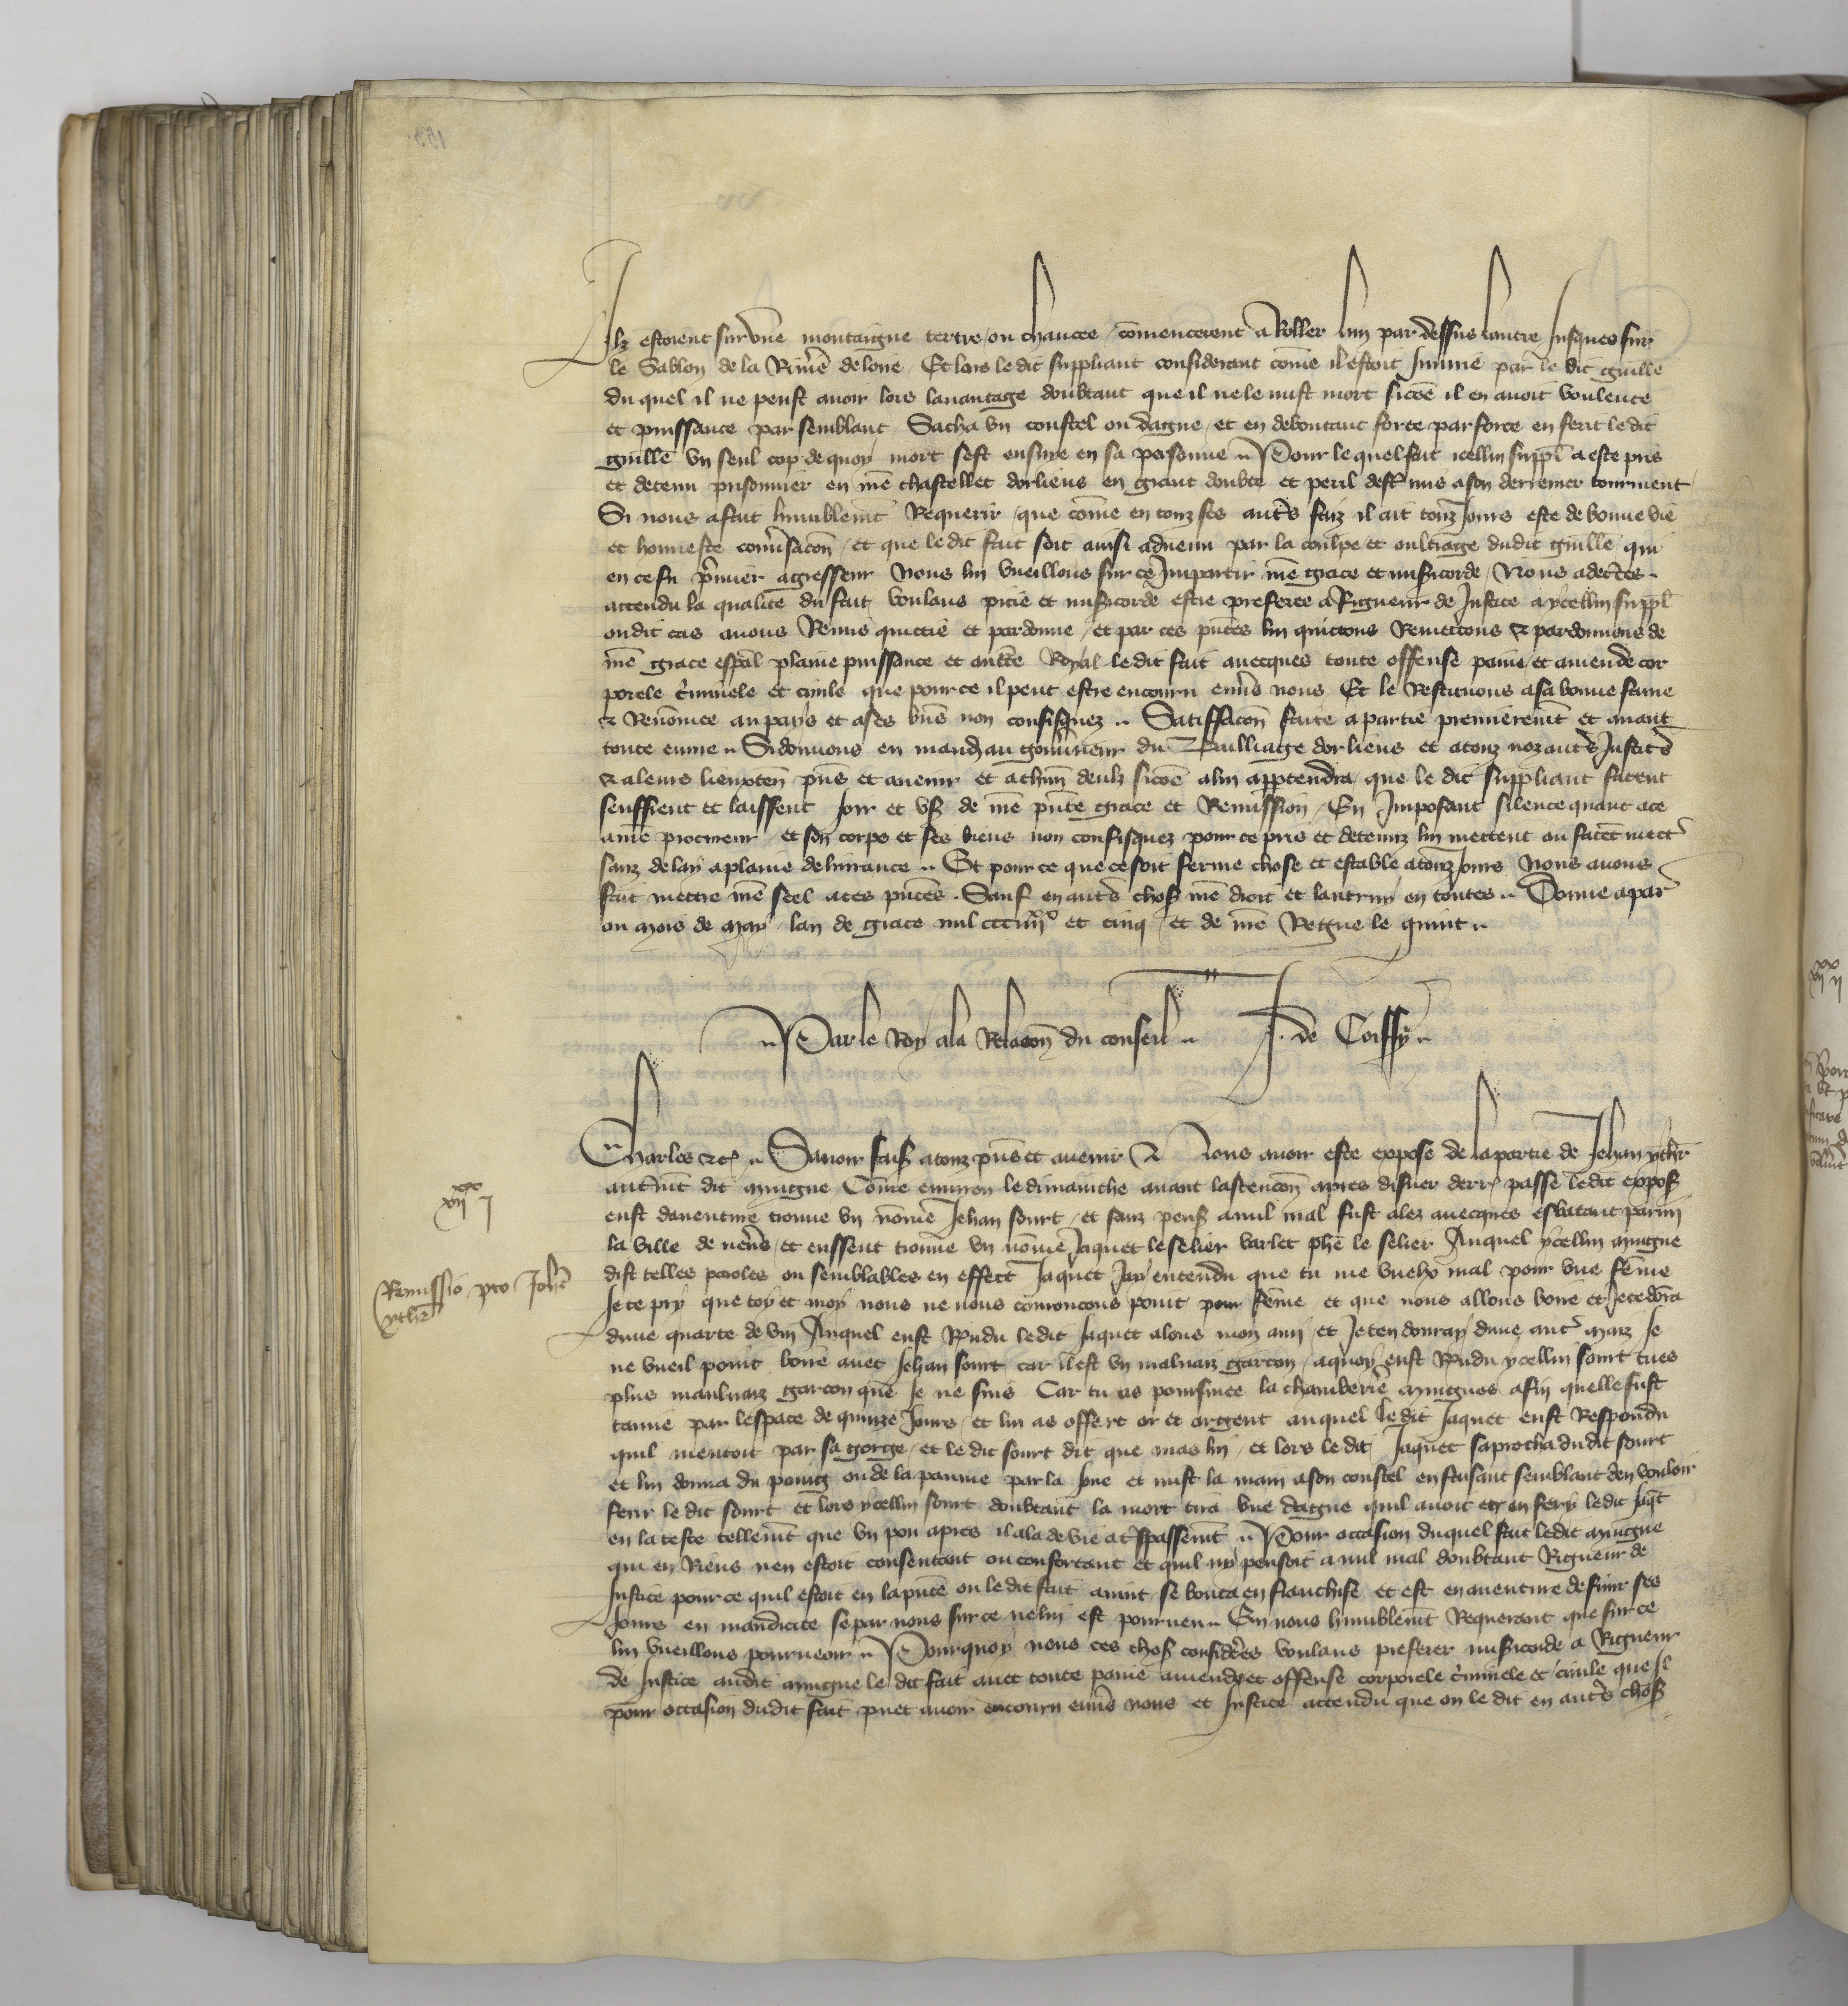 Ilz estoient sur vne montaigne tertre / ou chaucee / comencerent a Roller lun par dessus lautre Jusques sur
le Sablon de la Riuie de loire Et lors le dit suppliant considerant come il estoit Iniurie par le dit guille
du quel il ne peust auoir lors lauantage doubtant que il ne le mist mort sicoe il en auoit voulente
et puissance par semblant Sacha vn coustel ou dague / et en deboutant force par force en feri le dit
guille vn seul cop de quoy mort sest ensuye en sa personne Pour le quel fait icellui suppl a este pris
et detenu prisonnier en nre chastellet dorliens en grant doubte et peril destre mis a son derrenier tourment
Si nous a fait humblemt Requerir / que come en touz ses autrs faiz il ait touz Jours este de bonne vie
et honneste conusacon / et que le dit fait soit ainsi aduenu par la coulpe et oultrage dudit guille qui
en ce fu prmier agresseur Nous lui vueillons sur ce Impartir nre grace et misicorde / Nous adectes
attendu la qualite du fait voulans pitie et misicorde estre preferee a Rigueur de Justice a ycellui suppl
ou dit cas auons Remis quictie et pardonne / et par ces pntes lui quictons Remectons & pardonnons de
nre grace espal plaine puissance et aucte Royal le dit fait auecques toute offense paine et amende cor
porele crminele et ciuile que pour ce il peut estre encouru enuers nous Et le Restituons a sa bonne fame
& Renomee au pays et a ses bns non confisquez Satiffacon faite a partie premieremt et auant
toute euure Si donnons en mandt au gouuneur du Bailliage dorliens et a touz noz autrs Justics
& a leurs lieuxten pns et auenir et a chun deulx sicoe a lui appartendra que le dit suppliant facent
seuffrent et laissent Joir et vs de nre pnte grace et Remission / En Imposant silence quant a ce
a nre procureur / et son corps et ses biens non confisquez pour ce pris et detenuz lui mettent ou facet mectr
sanz delay a plaine deliurance Et pour ce que ce soit ferme chose et estable a touz Jours Nous auons
fait mectre nre scel a ces pntes . Sauf en autrs chos nre droit et lautruy en toutes Donne a par
ou mois de may lan de grace mil ccciiiixx et cinq / et de nre Regne le quint
Par le Roy a la Relacon du conseil J. de Coiffy
Charles &c Sauoir fais a touz pns et auenir & Nous auoir este expose de la partie de Jehan ythr
autmt dit mugue Come enuiron le dimanche auant lascencon apres disner derr passe le dit expos
eust dauenture trouue vn nome Jehan sourt / et sanz pens a nul mal fust alez auecques esbatant parmi
la ville de neurs / et eussent trouue vn nome Jaquet le selier varlet phe le selier Auquel ycellui mugue
dist telles paroles ou semblables en effect Jaquet Jay entendu que tu me vuelx mal pour vne feme
Je te pry que toy et moy nous ne nous courroncons point pour feme et que nous allons boire et Je te dora
dune quarte de vin Auquel eust Rndu le dit Jaquet alons mon ami / et Je ten donray dune autr maiz Je
ne vueil point boire auec Jehan sourt car il est vn mauuaiz garcon / a quoy eust Rndu ycellui sourt tu es
plus mauluaiz garcon que Je ne suis Car tu as poursuiuee la chamberiere mugues afin quelle fust
tamie par lespace de quinze Jours / et lui as offert or et argent auquel le dit Jaquet eust Respondu
quil mentoit par sa gorge / et le dit sourt dit que mais lui / et lors le dit Jaquet saprocha du dit sourt
et lui donna du poing ou de la paume par la Joue et mist la main a son coustel en faisant semblant den vouloir
ferir le dit sourt et lors ycellui sourt doubtant la mort tira vne dague quil auoit et en fery le dit Jaqt
en la teste tellemt que vn pou apres il ala de vie a trspassemt Pour occasion duquel fait le dit mugue
qui en Riens nen estoit consentant ou confortant et quil ny pensoit a nul mal doubtant Rigueur de
Justice pour ce quil estoit en la pnte ou le dit fait auint se bouta en franchise et est en auenture de finir ses
Jours en mandicite se par nous sur ce ne lui est pourueu En nous humblemt Requerant que sur ce
lui vueillons pourueoir Pourquoy nous ces chos considrees voulans preferer misicorde a Rigueur
de Justice audit mugue le dit fait auec toute paine amende et offense corporele crminele et ciuile que Il
pour occasion dudit fait puet auoir encouru enuers nous et Justice attendu que on le dit en autrs chos
xx
xii j
Remissio pro Johe
ythr